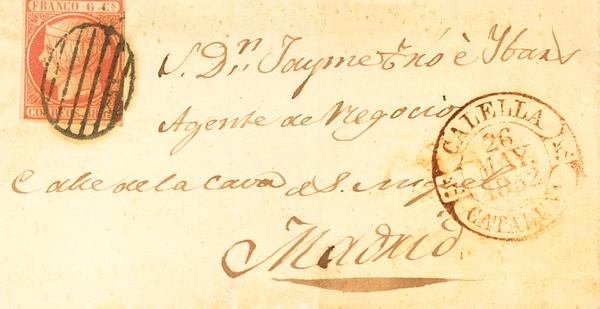 FRANCO 6 Cs
CORREOS 1852
S. Dn. Jayme Tró è Ybars
Agente de Negocios
Calle de la Cava de S. Miguel
Madrid
CALELLA
26
MAY.
1852
CATALUÑA